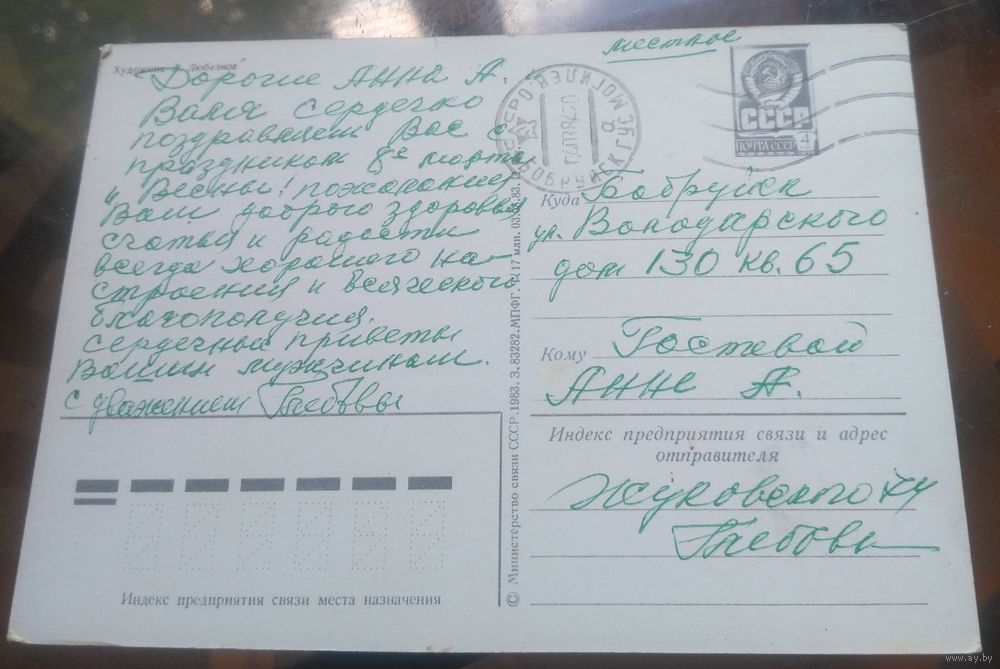 Художник Любезнов
местное
Дорогие Анна А.,
Валя сердечно
поздравляем Вас с
праздником 8е марта
и Весны! пожелание
Вам доброго здоровья
счастья и радости
всегда хорошего на-
строения и всяческого
благополучия.
сердечный приветы
Вашим мужчинам.
с уважением Глебовы
БОБРУЙСК МОГИЛЕВ
СССР
ПОЧТА СССР 4
Куда Бобруйск
ул. Володарского
дом 130 кв. 65
Кому Гостевой
Анне А.
Индекс предприятия связи и адрес
отправителя
Жуковского 74
Глебовы
© Министерство связи СССР. 1983. З. 83282. МПФГ. 17 млн. 03.83.
Индекс предприятия связи места назначения
www.ay.by